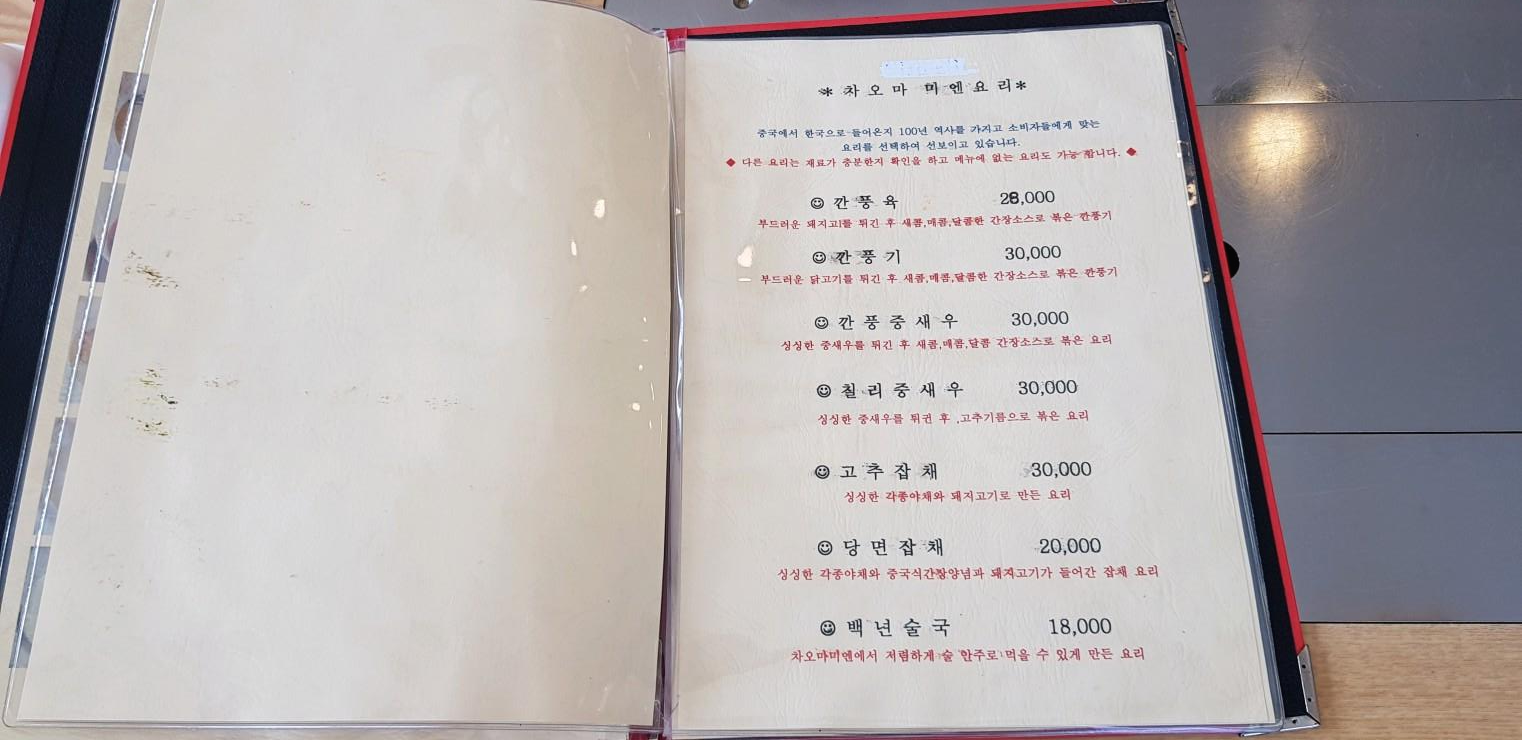 *차오마 미엔요리*
중국에서 한국으로 들어온지 100년 역사를 가지고 소비자들에게 맞는
요리를 선택하여 선보이고 있습니다.
◆ 다른 요리는 재료가 충분한지 확인을 하고 메뉴에 없는 요리도 가능 합니다. ◆
☺ 깐풍육 28,000
부드러운 돼지고기를 튀긴 후 새콤,매콤,달콤한 간장소스로 볶은 깐풍기
☺ 깐풍기 30,000
부드러운 닭고기를 튀긴 후 새콤,매콤,달콤한 간장소스로 볶은 깐풍기
☺ 깐풍중새우 30,000
싱싱한 중새우를 튀긴 후 새콤,매콤,달콤 간장소스로 볶은 요리
☺ 칠리중새우 30,000
싱싱한 중새우를 튀귄 후 ,고추기름으로 볶은 요리
☺ 고추잡채 30,000
싱싱한 각종야채와 돼지고기로 만든 요리
☺ 당면잡채 20,000
싱싱한 각종야채와 중국식간장양념과 돼지고기가 들어간 잡채 요리
☺ 백년술국 18,000
차오마미엔에서 저렴하게 술 안주로 먹을 수 있게 만든 요리